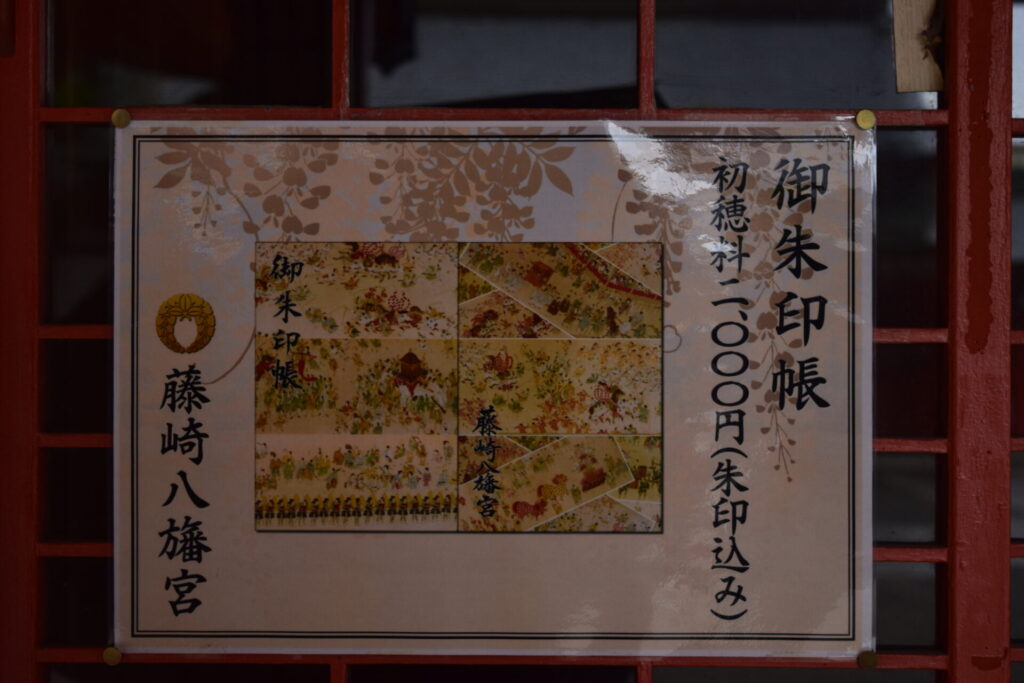 御朱印帳
初穂料二、〇〇〇円(朱印込み)
御朱印帳
藤崎八旛宮
藤崎八旛宮